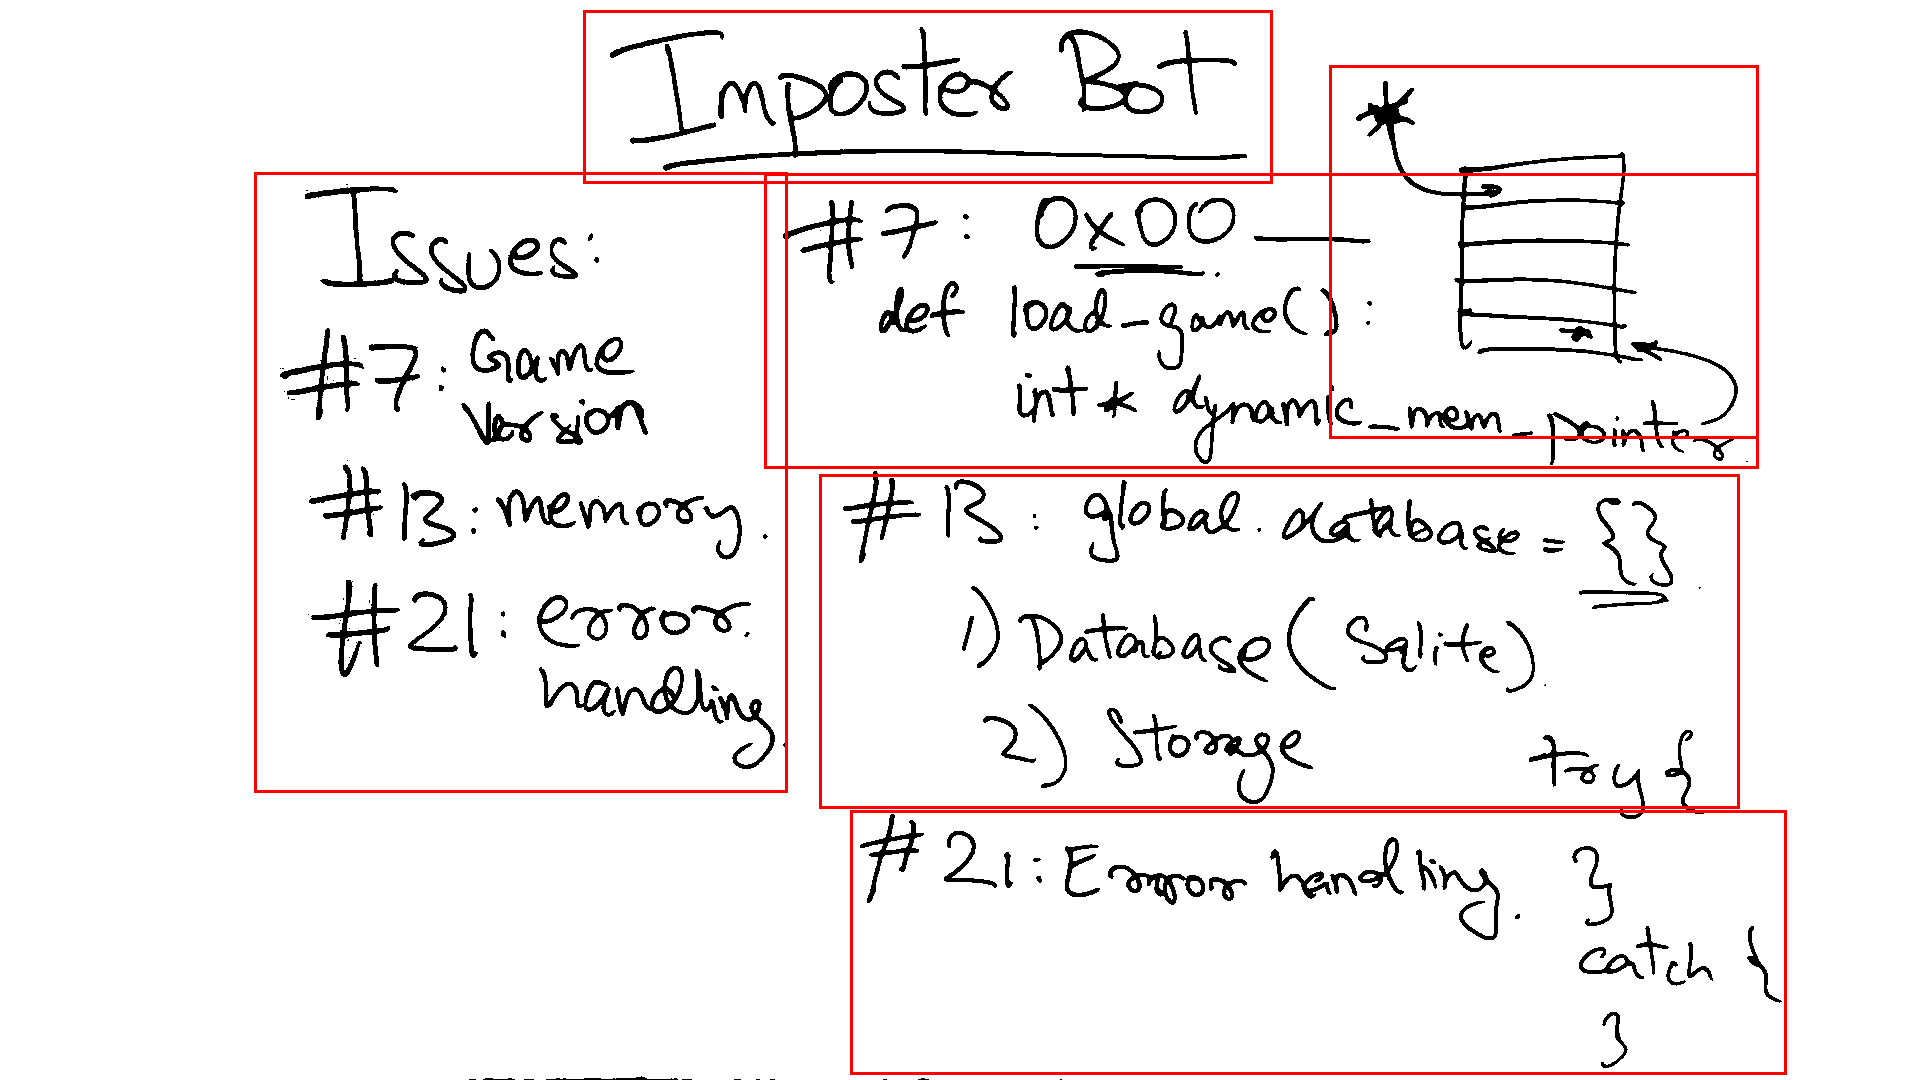 Imposter Bot
Issues:
#7: Game
version
#13: memory.
#21: error.
handling.
#7: 0x00
def load_game():
int* dynamic_mem_pointer
#13: global. database = {}
1) Database (Sqlite)
2) Storage
try {
#21: Error handling. }
catch {
}